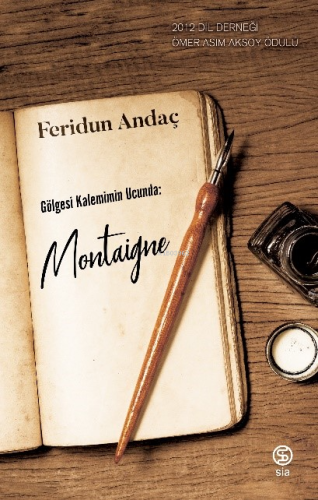 2012 DİL DERNEĞİ
ÖMER ASIM AKSOY ÖDÜLÜ
Feridun Andaç
Gölgesi Kaleminin Ucunda:
Montaigne
sia